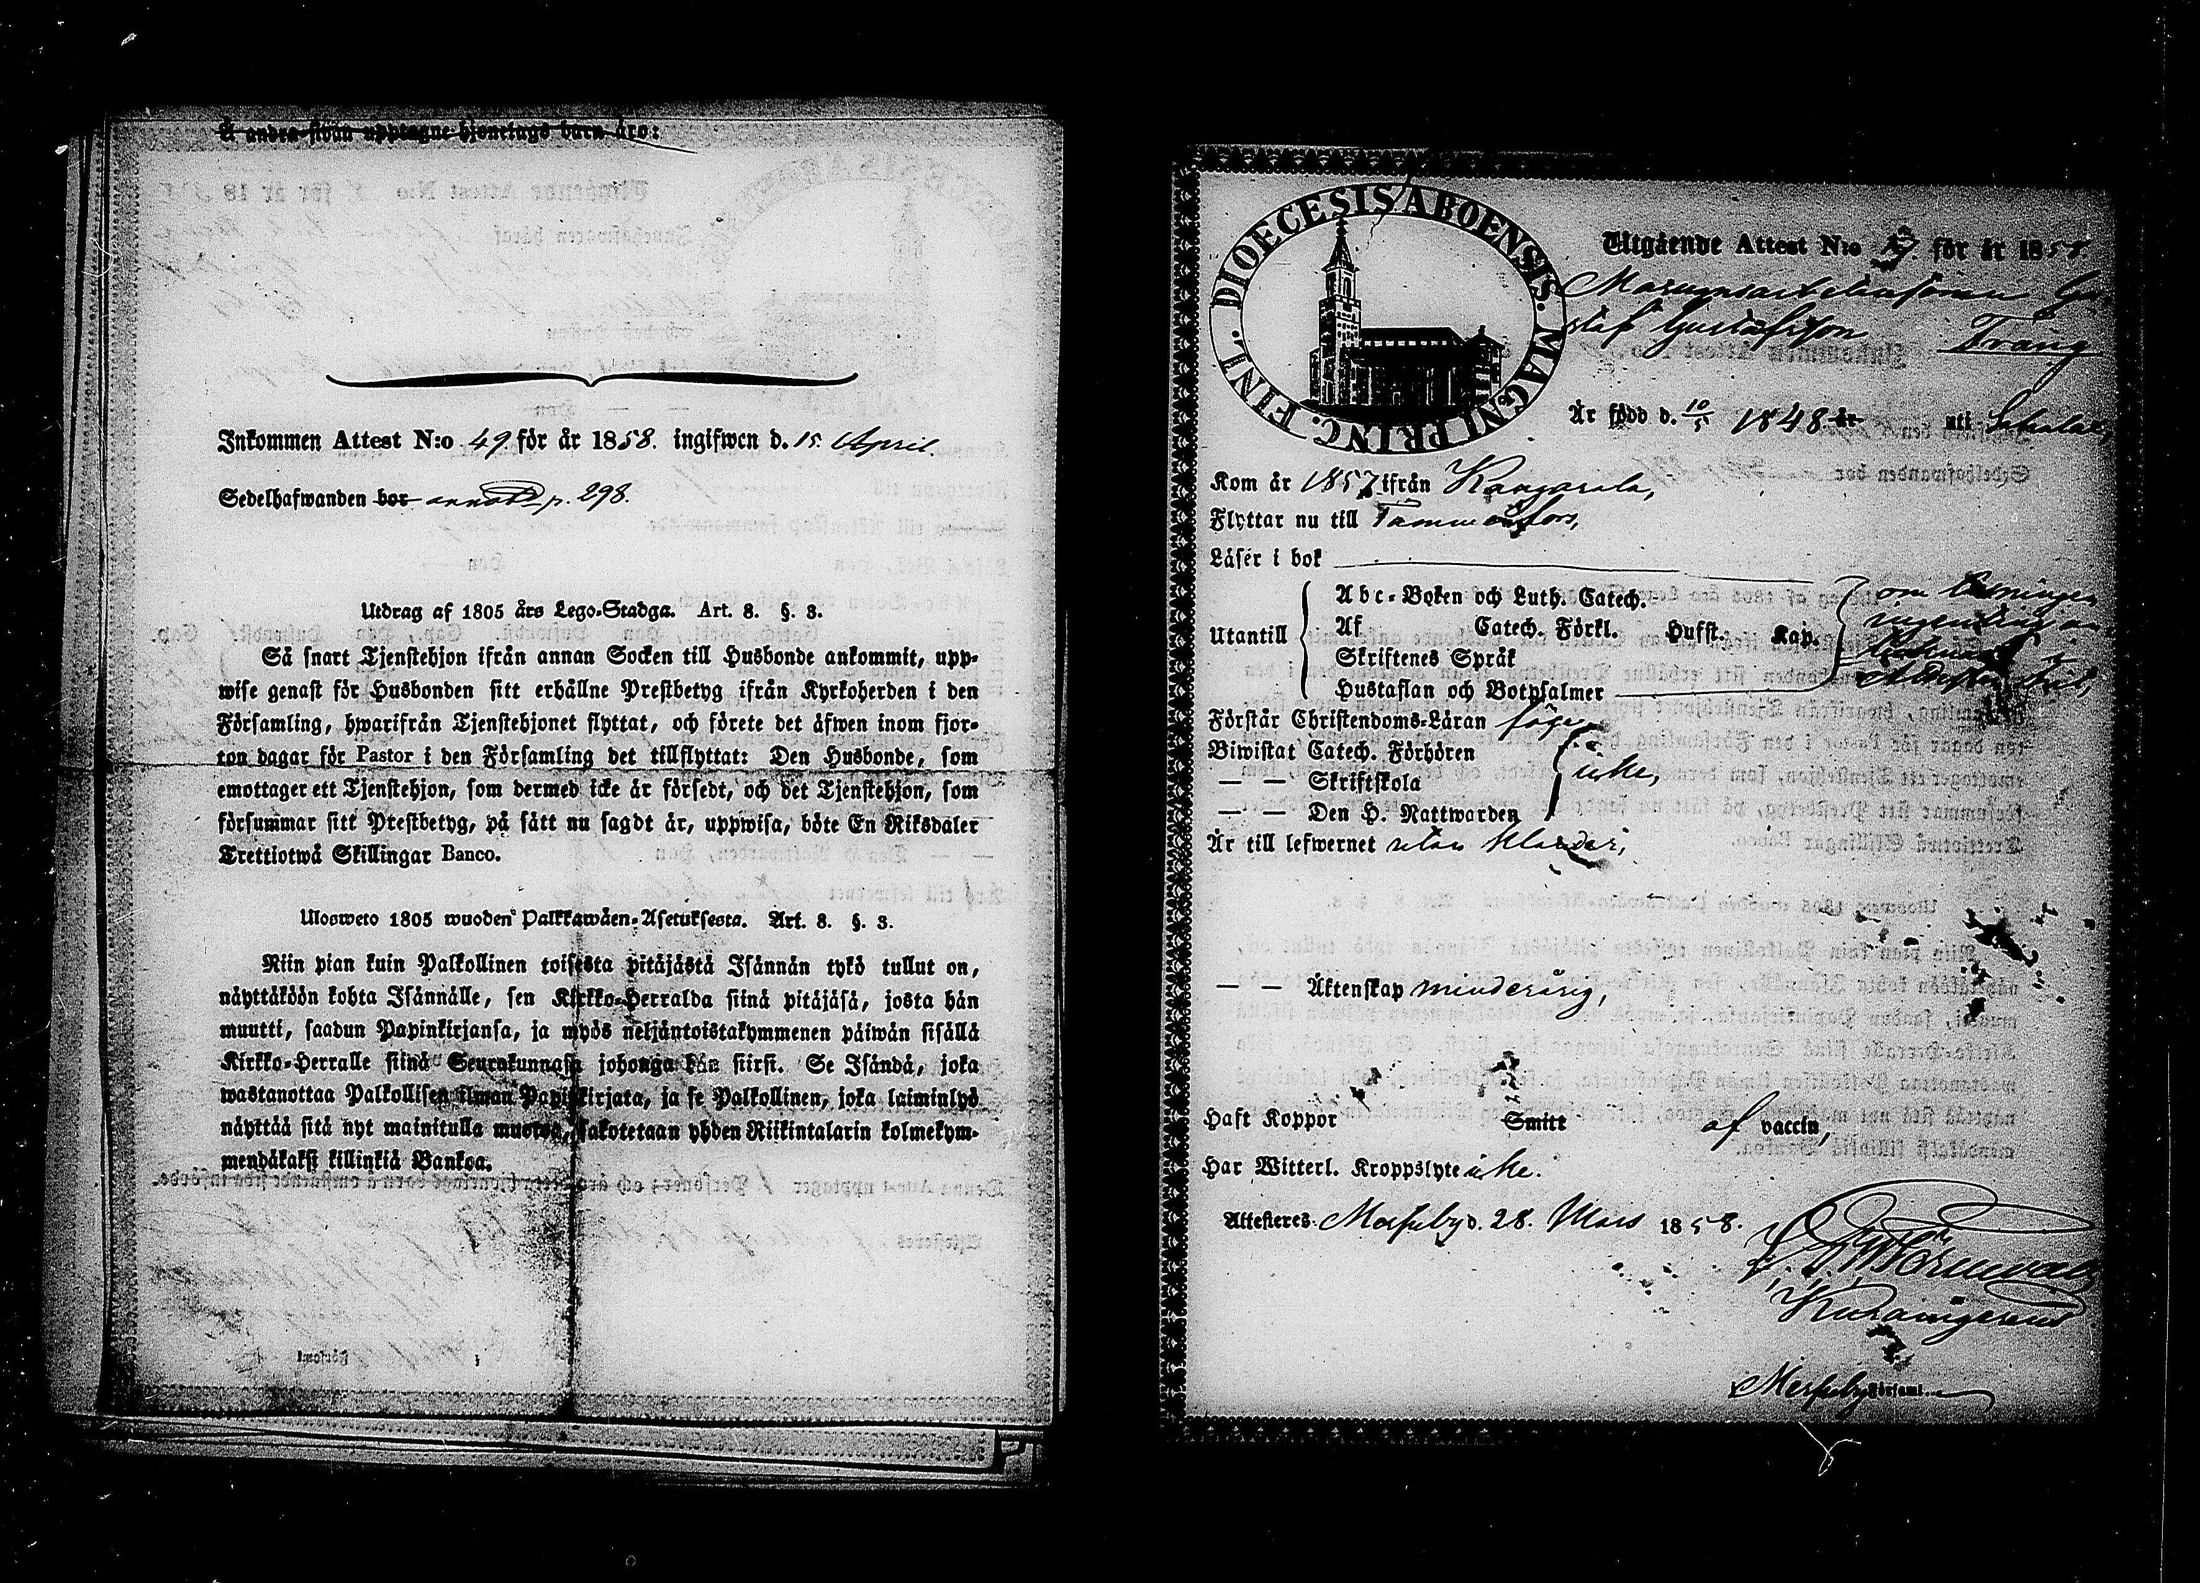 Å andra sidan upptagne hjonelags barn äro:
Inkommen Attest N:o 49 för år 1858. ingifwen d. 15. April.
Sedelhafwanden bor annot. p. 298.
Utdrag af 1805 års Lego-Stadga. Art. 8. §. 3.
Så snart Tjenstehjon ifrån annan Socken till Husbonde ankommit, upp-
wise genast för Husbonden sitt erhållne Prestbetyg ifrån Kyrkoherden i den
Församling, hwarifrån Tjenstehjonet flyttat, och förete det äfwen inom fjor-
ton dagar för Pastor i den Församling det tillflyttat: Den Husbonde, som
emottager ett Tjenstehjon, som dermed icke är försedt, och det Tjenstehjon, som
försummar sitt Prestbetyg, på sätt nu sagdt är, uppwisa, böte En Riksdaler
Trettiotwå Skillingar Banco.
Ulosweto 1805 wuoden Palkkawäen-Asetuksesta. Art. 8. §. 3.
Niin pian kuin Palkollinen toisesta pitäjästä Isännän tykö tullut on,
näyttäköön kohta Isännälle, sen Kirkko-Herralda siinä pitäjäsä, josta hän
muutti, saadun Papinkirjansa, ja myös neljäntoistakymmenen päiwän sisällä
Kirkko-Herralle siinä Seurakunnasa johonga hän siirsi. Se Isändä, joka
wastanottaa Palkollisen ilman Papinkirjata, ja se Palkollinen, joka laiminlyö
näyttää sitä nyt mainitulla muotoa, sakotetaan yhden Riikintalarin kolmekym-
mendäkaksi killinkiä Bankoa.
DIOECESIS ABOENSIS. MAGNI PRINC. FINL.
Utgående Attest N:o för år 1858.
Gustafsson Trång
Är född d. 10/5 1848 år uti
Kom år 1857 ifrån Kangasala,
Flyttar nu till Tammerfors,
Läser i bok
Utantill
Abc-Boken och Luth. Catech.
Af Catech. Förkl. Husst. Kap.
Skriftenes Språk
Hustaflan och Botpsalmer
Förstår Christendoms-Läran föga
Biwistat Catech. Förhören
— — Skriftskola icke,
— — Den H. Nattwarden
Är till lefwernet utan klander,
— — Äktenskap minderårig,
Haft Koppor Smitt af vaccin,
Har Witterl. Kroppslyte icke.
Attesteres Messuby d. 28. Mars 1858.
Messuby Församl.